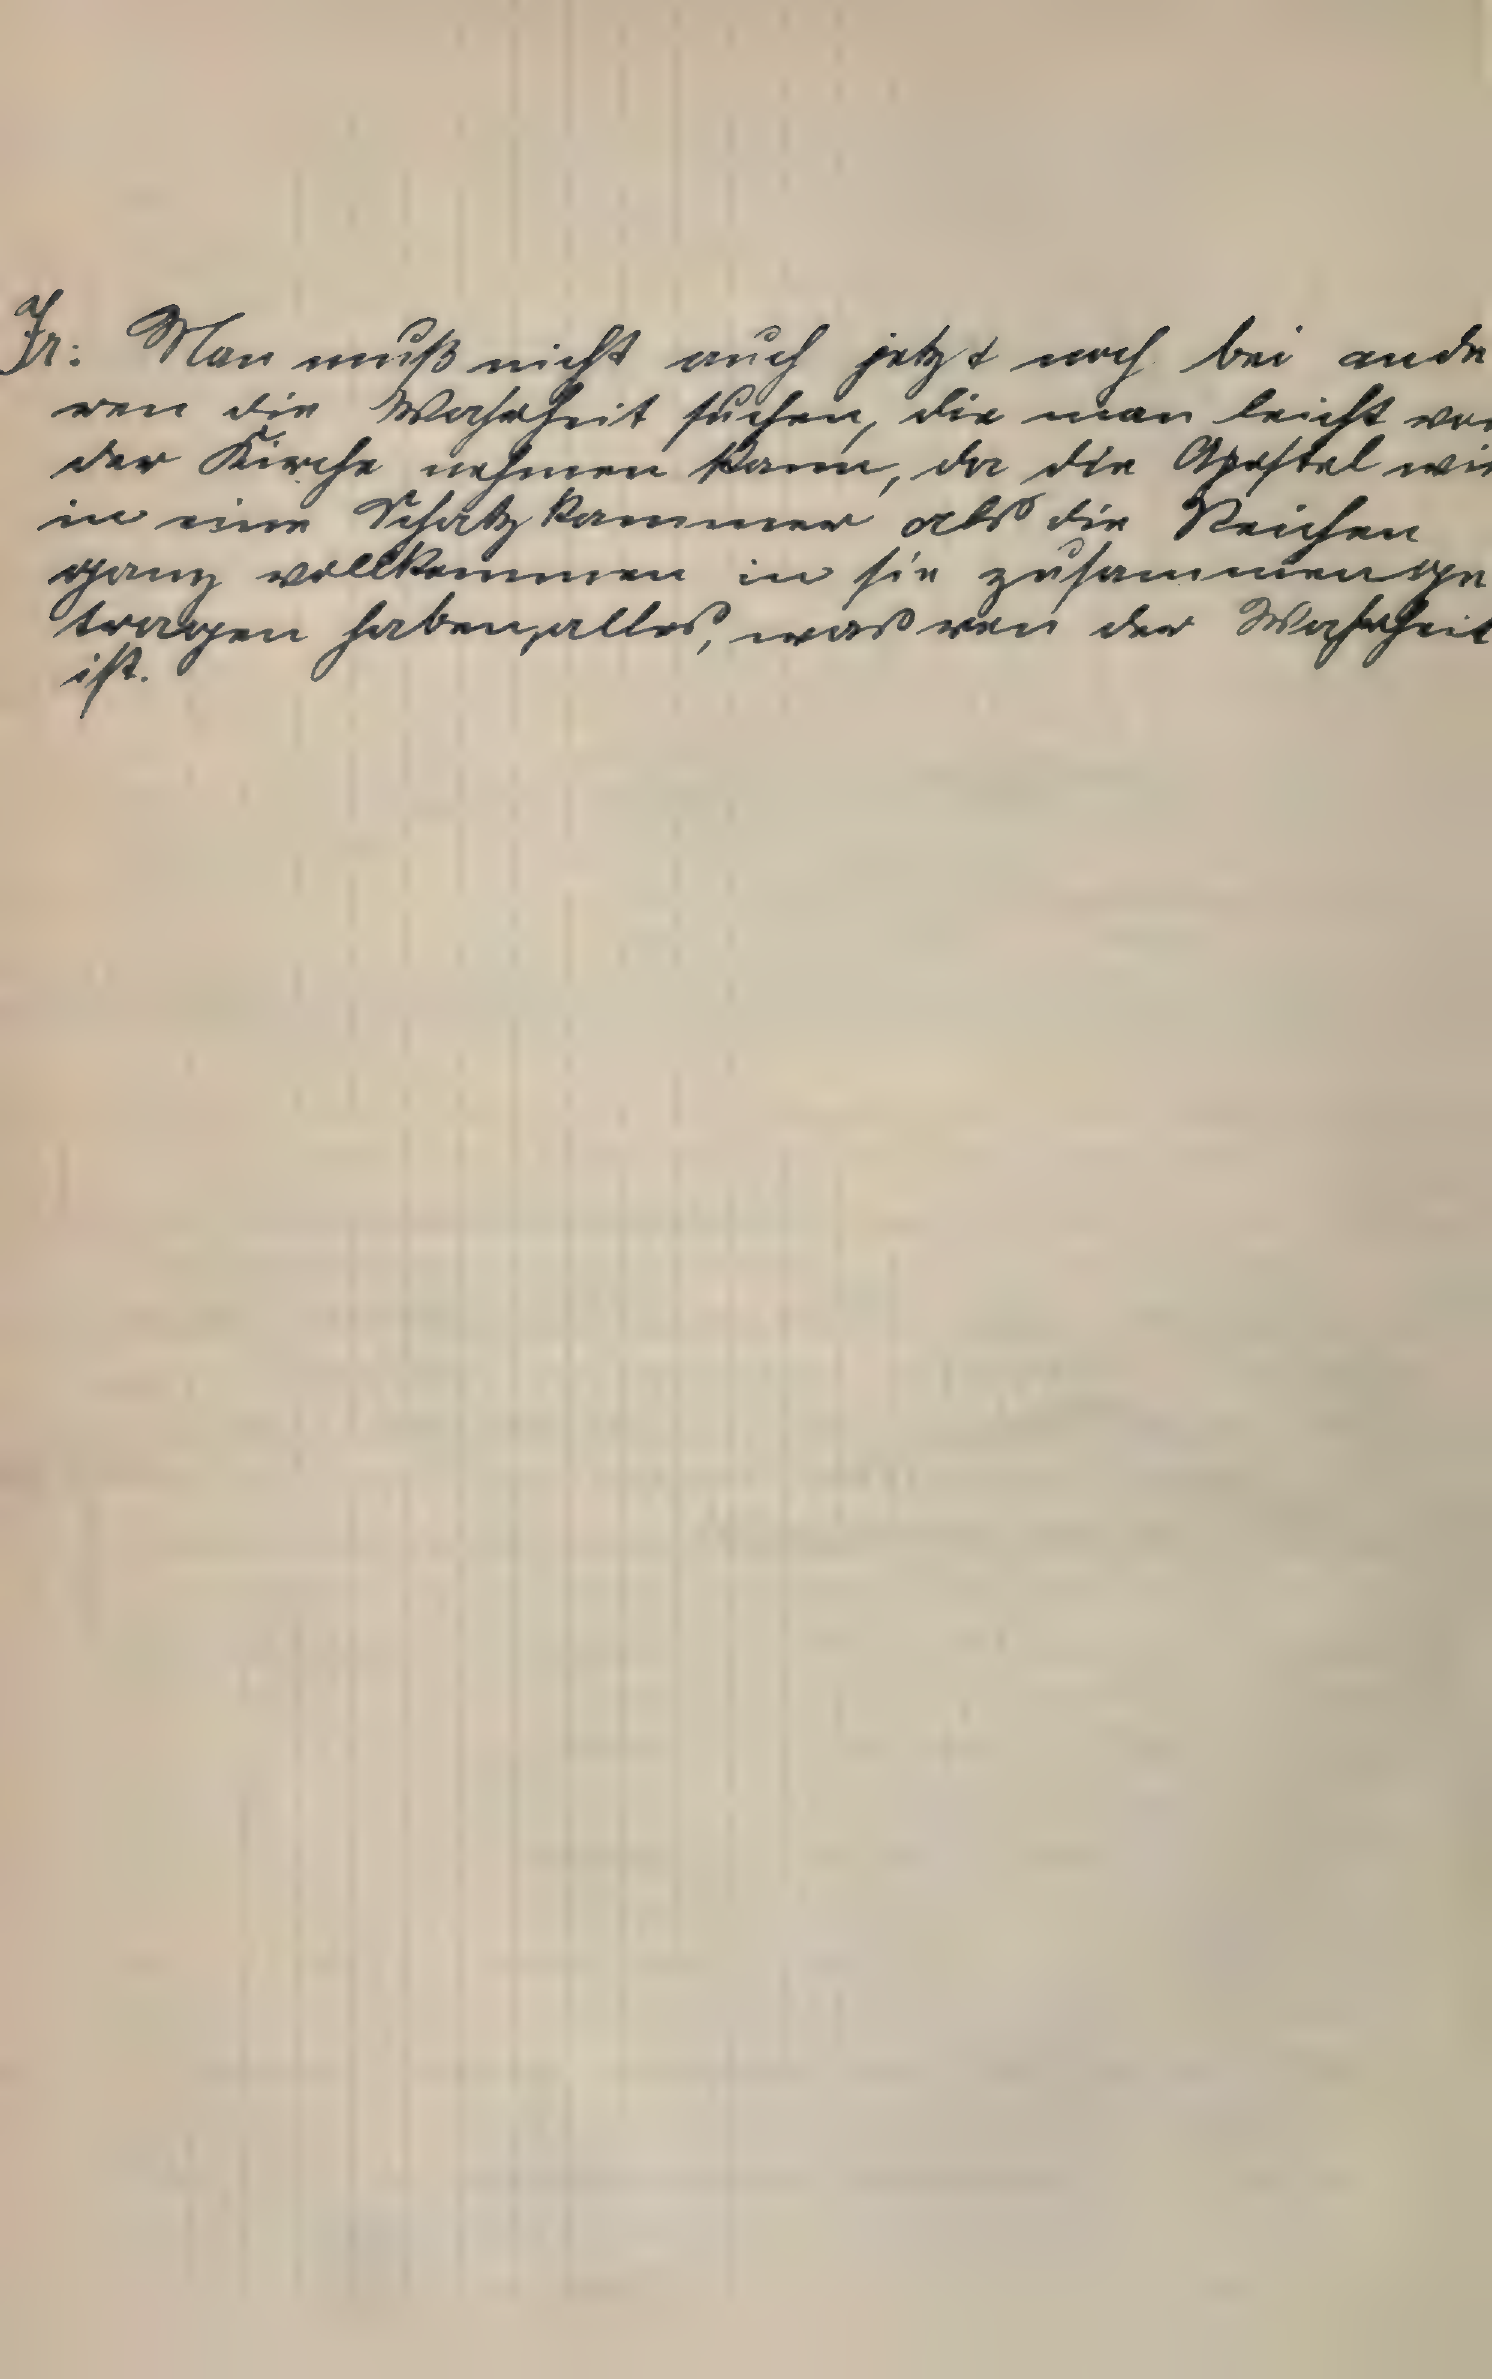 Ir: Man muß nicht auch jetzt noch bei ande
ren die Wahrheit suchen, die man leicht von
der Kirche nehmen kann, da die Apostel wie
in eine Schatzkammer als die Reichen
ganz vollkommen in sie zusammenge
tragen haben, alles, was von der Wahrheit
ist.